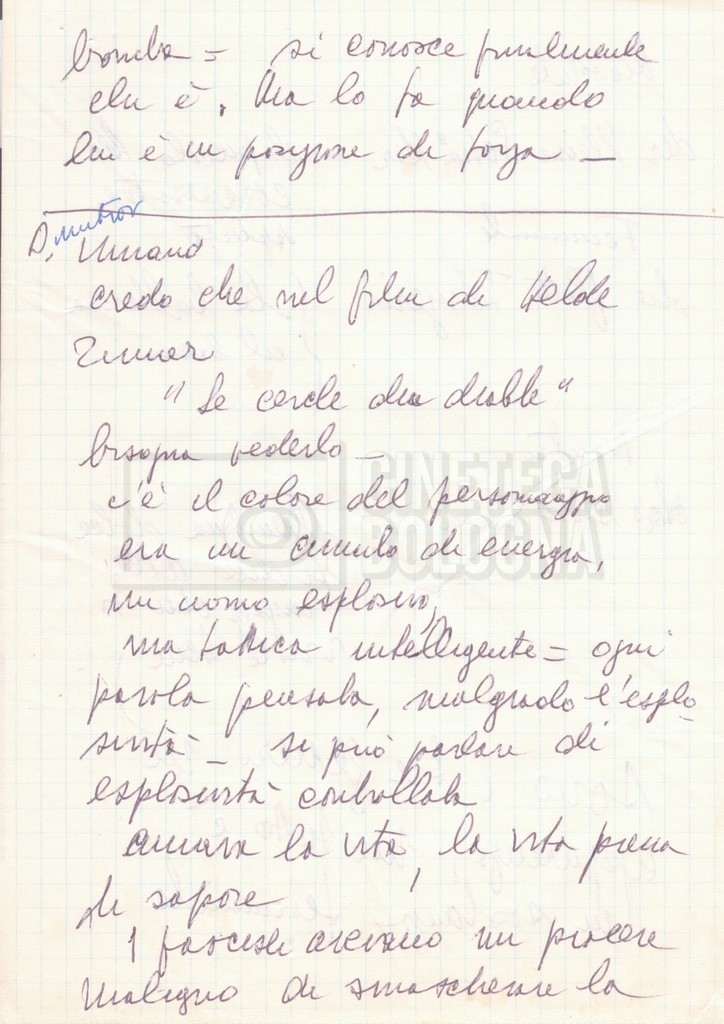 bomba = si conosce finalmente
chi è. Ma lo fa quando
lui è in posizione di forza –
Dimitrov
Umano
credo che nel film di Helde
Zinner
"Le cercle du diable"
bisogna vederlo –
c'è il colore del personaggio
era un cumulo di energia,
un uomo esplosivo,
ma tattica intelligente = ogni
parola pensata, malgrado l'esplo
sività – si può parlare di
esplosività controllata
amava la vita, la vita piena
di sapore
I fascisti avevano un piacere
maligno di smascherare la
CINETECA
BOLOGNA